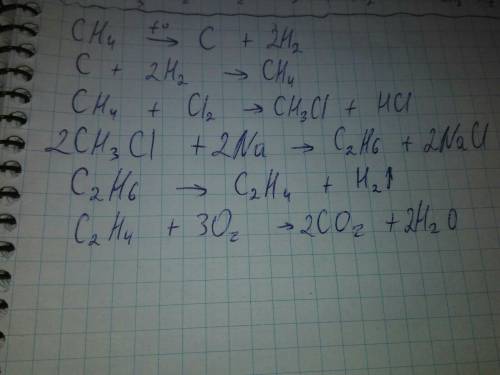 CH₄ t° → C + 2H₂
C + 2H₂ → CH₄
CH₄ + Cl₂ → CH₃Cl + HCl
2CH₃Cl + 2Na → C₂H₆ + 2NaCl
C₂H₆ → C₂H₄ + H₂↑
C₂H₄ + 3O₂ → 2CO₂ + 2H₂O